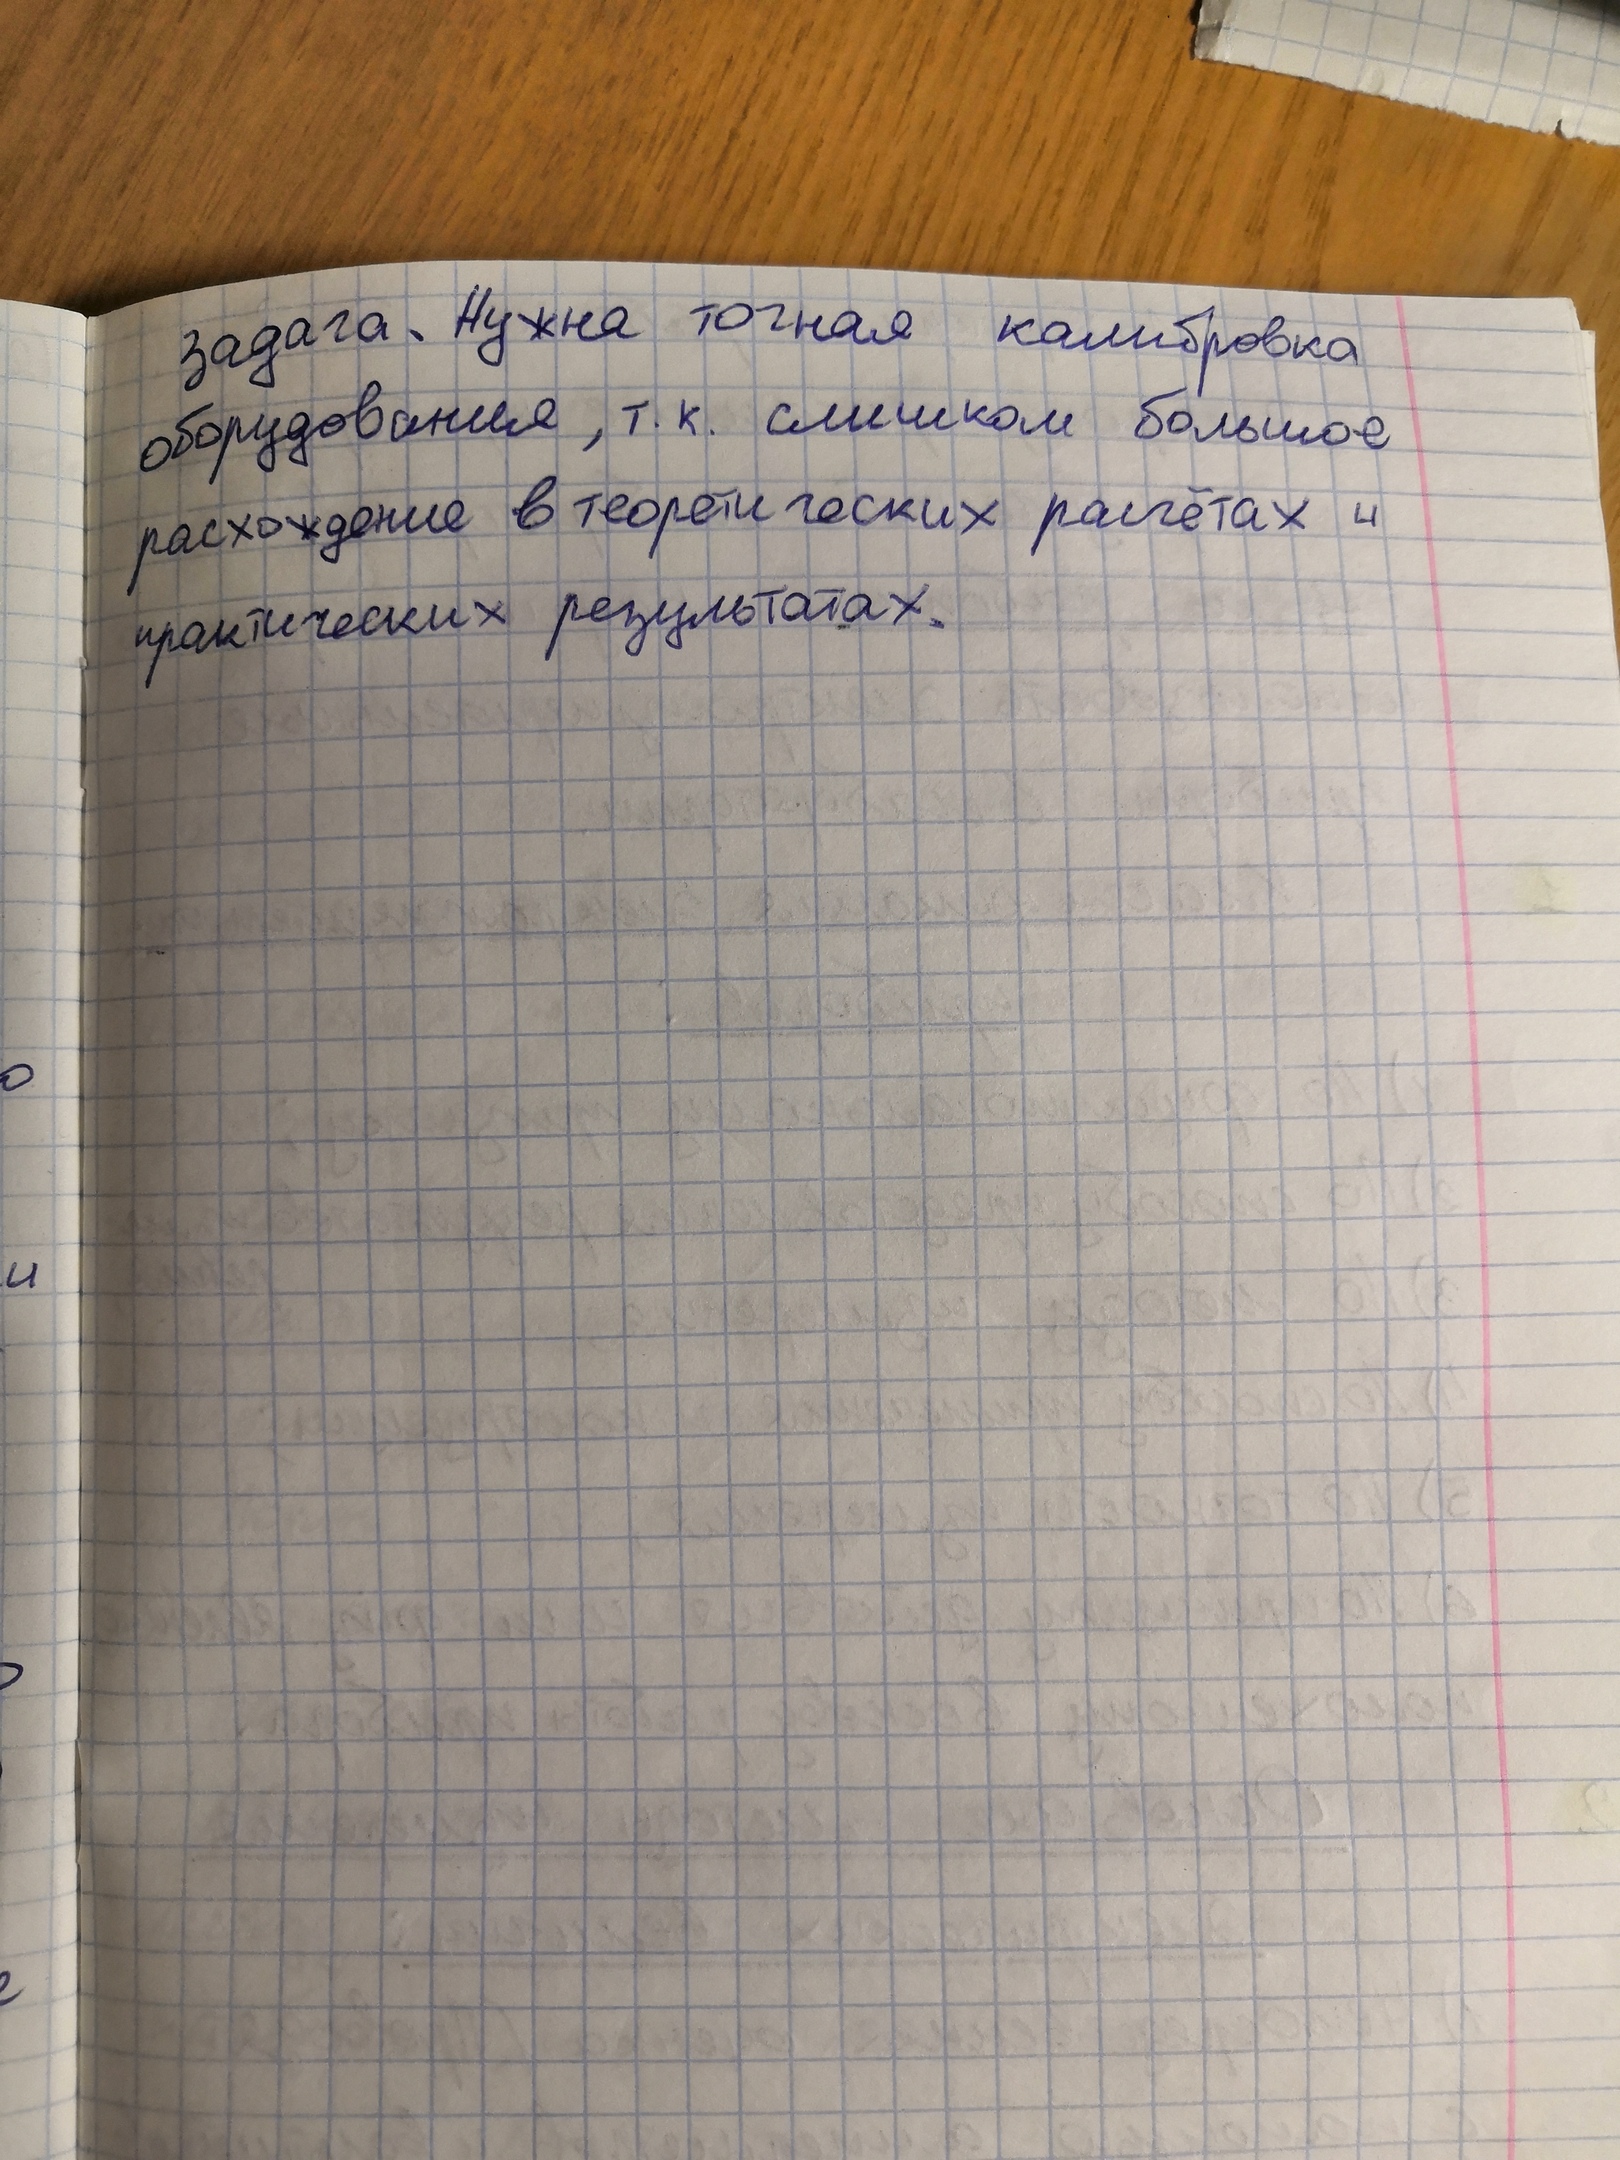 задача. Нужна точная калибровка
оборудования, т.к. слишком большое
расхождение в теоретических расчётах и
практических результатах.